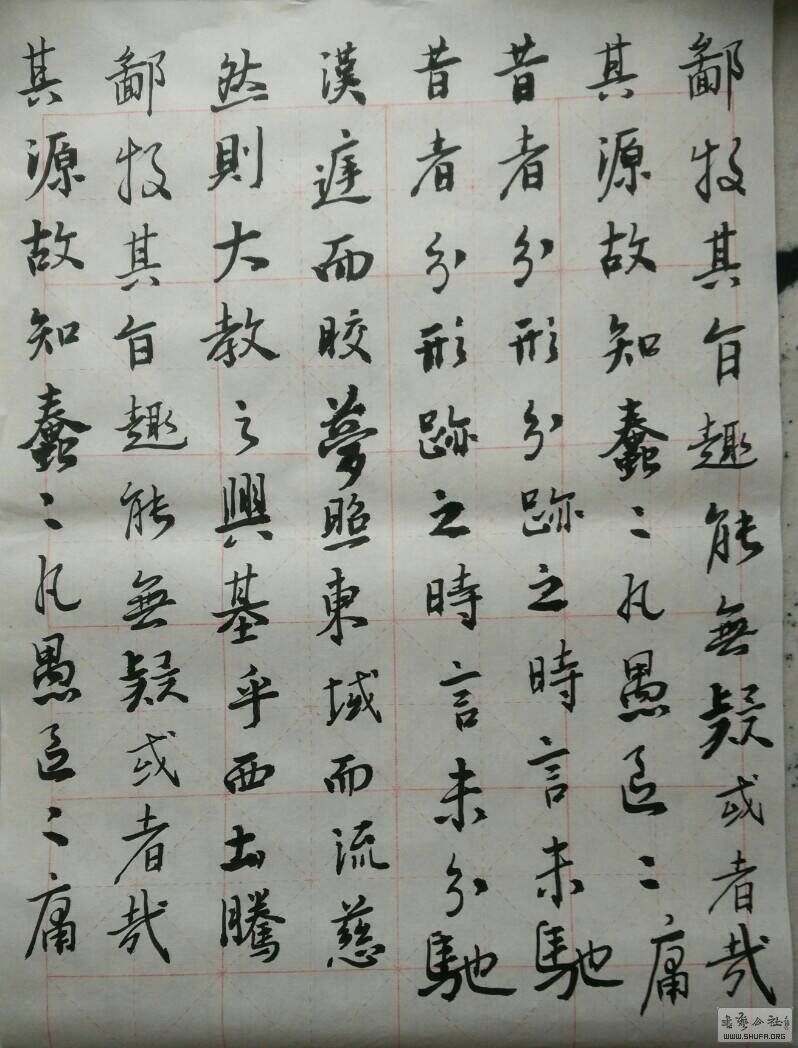 其源故知蠢〻凡愚區〻庸
鄙投其旨趣能無疑或者哉
然則大教之興基乎西土騰
漢庭而晈夢照東域而流慈
昔者分形跡之時言未分馳
昔者分形分跡之時言未馳
其源故知蠢〻凡愚區〻庸
鄙投其旨趣能無疑或者哉
書藝公社
WWW.SHUFA.ORG